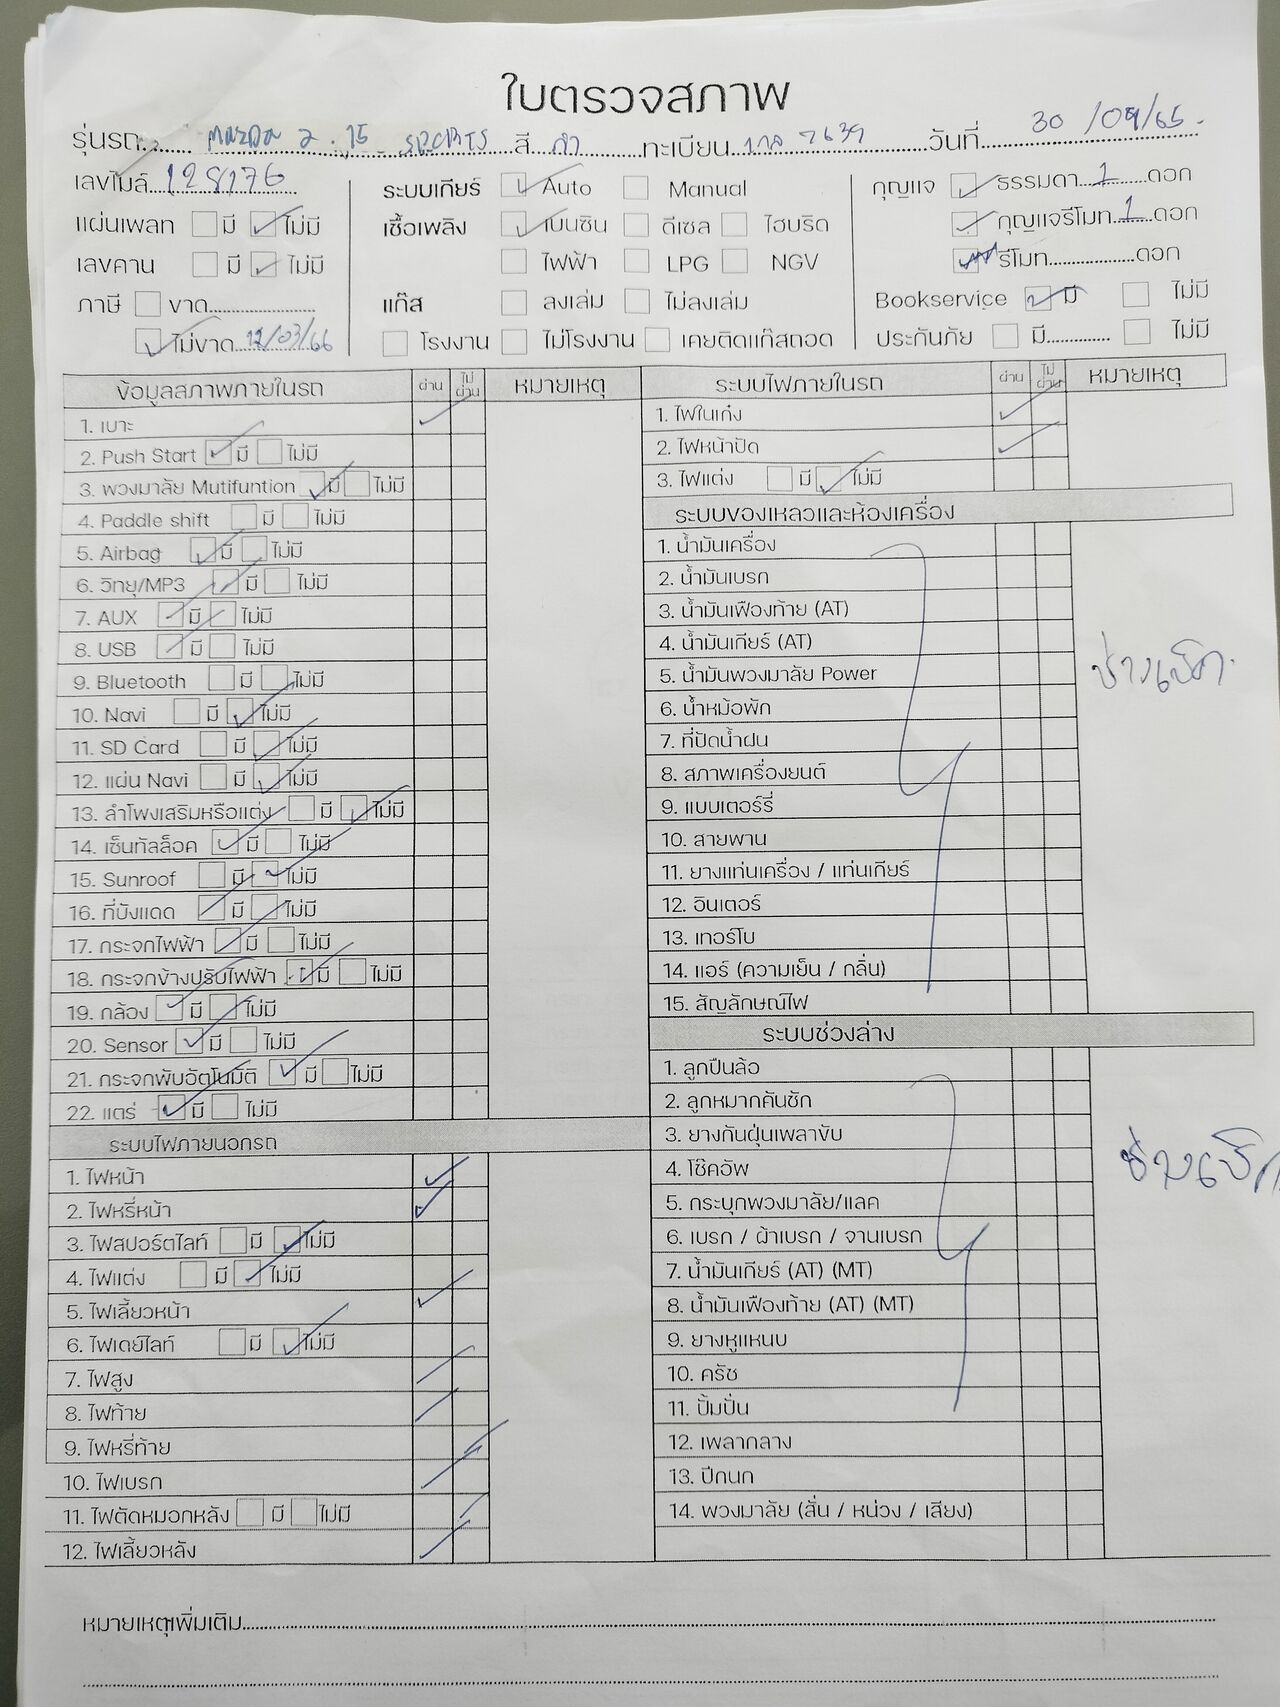 ใบตรวจสภาพ
รุ่นรถ MAZDA 2 . 15 SPORTS สี ดำ ทะเบียน 2639 วันที่ 30 /09/65
เลขไมล์ 128176 ระบบเกียร์ Auto Manual กุญแจ ธรรมดา 1 ดอก
แผ่นเพลท มี ไม่มี เชื้อเพลิง เบนซิน ดีเซล ไฮบริด กุญแจรีโมท 1 ดอก
เลขคาน มี ไม่มี ไฟฟ้า LPG NGV รีโมท ดอก
ภาษี ขาด แก๊ส ลงเล่ม ไม่ลงเล่ม Bookservice มี ไม่มี
ไม่ขาด 12/03/66 โรงงาน ไม่โรงงาน เคยติดแก๊สถอด ประกันภัย มี ไม่มี
ข้อมูลสภาพภายในรถ ผ่าน ไม่ผ่าน หมายเหตุ
1. เบาะ
2. Push Start มี ไม่มี
3. พวงมาลัย Mutifuntion มี ไม่มี
4. Paddle shift มี ไม่มี
5. Airbag มี ไม่มี
6. วิทยุ/MP3 มี ไม่มี
7. AUX มี ไม่มี
8. USB มี ไม่มี
9. Bluetooth มี ไม่มี
10. Navi มี ไม่มี
11. SD Card มี ไม่มี
12. แผ่น Navi มี ไม่มี
13. ลำโพงเสริมหรือแต่ง มี ไม่มี
14. เซ็นทัลล็อค มี ไม่มี
15. Sunroof มี ไม่มี
16. ที่บังแดด มี ไม่มี
17. กระจกไฟฟ้า มี ไม่มี
18. กระจกข้างปรับไฟฟ้า มี ไม่มี
19. กล้อง มี ไม่มี
20. Sensor มี ไม่มี
21. กระจกพับอัตโนมัติ มี ไม่มี
22. แตร่ มี ไม่มี
ระบบไฟภายนอกรถ
1. ไฟหน้า
2. ไฟหรี่หน้า
3. ไฟสปอร์ตไลท์ มี ไม่มี
4. ไฟแต่ง มี ไม่มี
5. ไฟเลี้ยวหน้า
6. ไฟเดย์ไลท์ มี ไม่มี
7. ไฟสูง
8. ไฟท้าย
9. ไฟหรี่ท้าย
10. ไฟเบรก
11. ไฟตัดหมอกหลัง มี ไม่มี
12. ไฟเลี้ยวหลัง
ระบบไฟภายในรถ ผ่าน ไม่ผ่าน หมายเหตุ
1. ไฟในเก๋ง
2. ไฟหน้าปัด
3. ไฟแต่ง มี ไม่มี
ระบบของเหลวและห้องเครื่อง
1. น้ำมันเครื่อง
2. น้ำมันเบรก
3. น้ำมันเฟืองท้าย (AT)
4. น้ำมันเกียร์ (AT)
5. น้ำมันพวงมาลัย Power
6. น้ำหม้อพัก
7. ที่ปัดน้ำฝน
8. สภาพเครื่องยนต์
9. แบบเตอร์รี่
10. สายพาน
11. ยางแท่นเครื่อง / แท่นเกียร์
12. อินเตอร์
13. เทอร์โบ
14. แอร์ (ความเย็น / กลิ่น)
15. สัญลักษณ์ไฟ
ช่างเช็ค
ระบบช่วงล่าง
1. ลูกปืนล้อ
2. ลูกหมากคันชัก
3. ยางกันฝุ่นเพลาขับ
4. โช๊คอัพ
5. กระบุกพวงมาลัย/แลค
6. เบรก / ผ้าเบรก / จานเบรก
7. น้ำมันเกียร์ (AT) (MT)
8. น้ำมันเฟืองท้าย (AT) (MT)
9. ยางหูแหนบ
10. ครัช
11. ปั้มปั่น
12. เพลากลาง
13. ปีกนก
14. พวงมาลัย (สั่น / หน่วง / เสียง)
ช่างเช็ค
หมายเหตุเพิ่มเติม